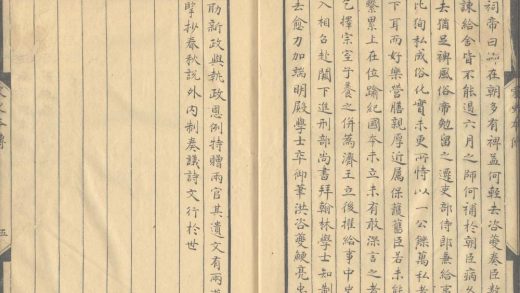 祠帝曰卿在朝多有裨益何輕去咨夔奏臣數
諫給舍皆不能過六月之師何補於朝臣病久
去猶足裨風俗帝勉留之遷吏部侍郎兼給事
比徇私成俗化實未更所恃以一公鑠萬私者
下耳而好樂營繕親厚近屬保護舊臣若未能
繫累上在位踰紀國本未立未有敢深言之者
乞擇宗室子養之併為濟王立後擢給事中史
入相召赴闕下進刑部尚書拜翰林學士知制
去愈力加端明殿學士卒御筆洪咨夔鯁亮忠
勛新政與執政恩例特贈兩官其遺文有兩
擥抄春秋說外內制奏議詩文行於世
五